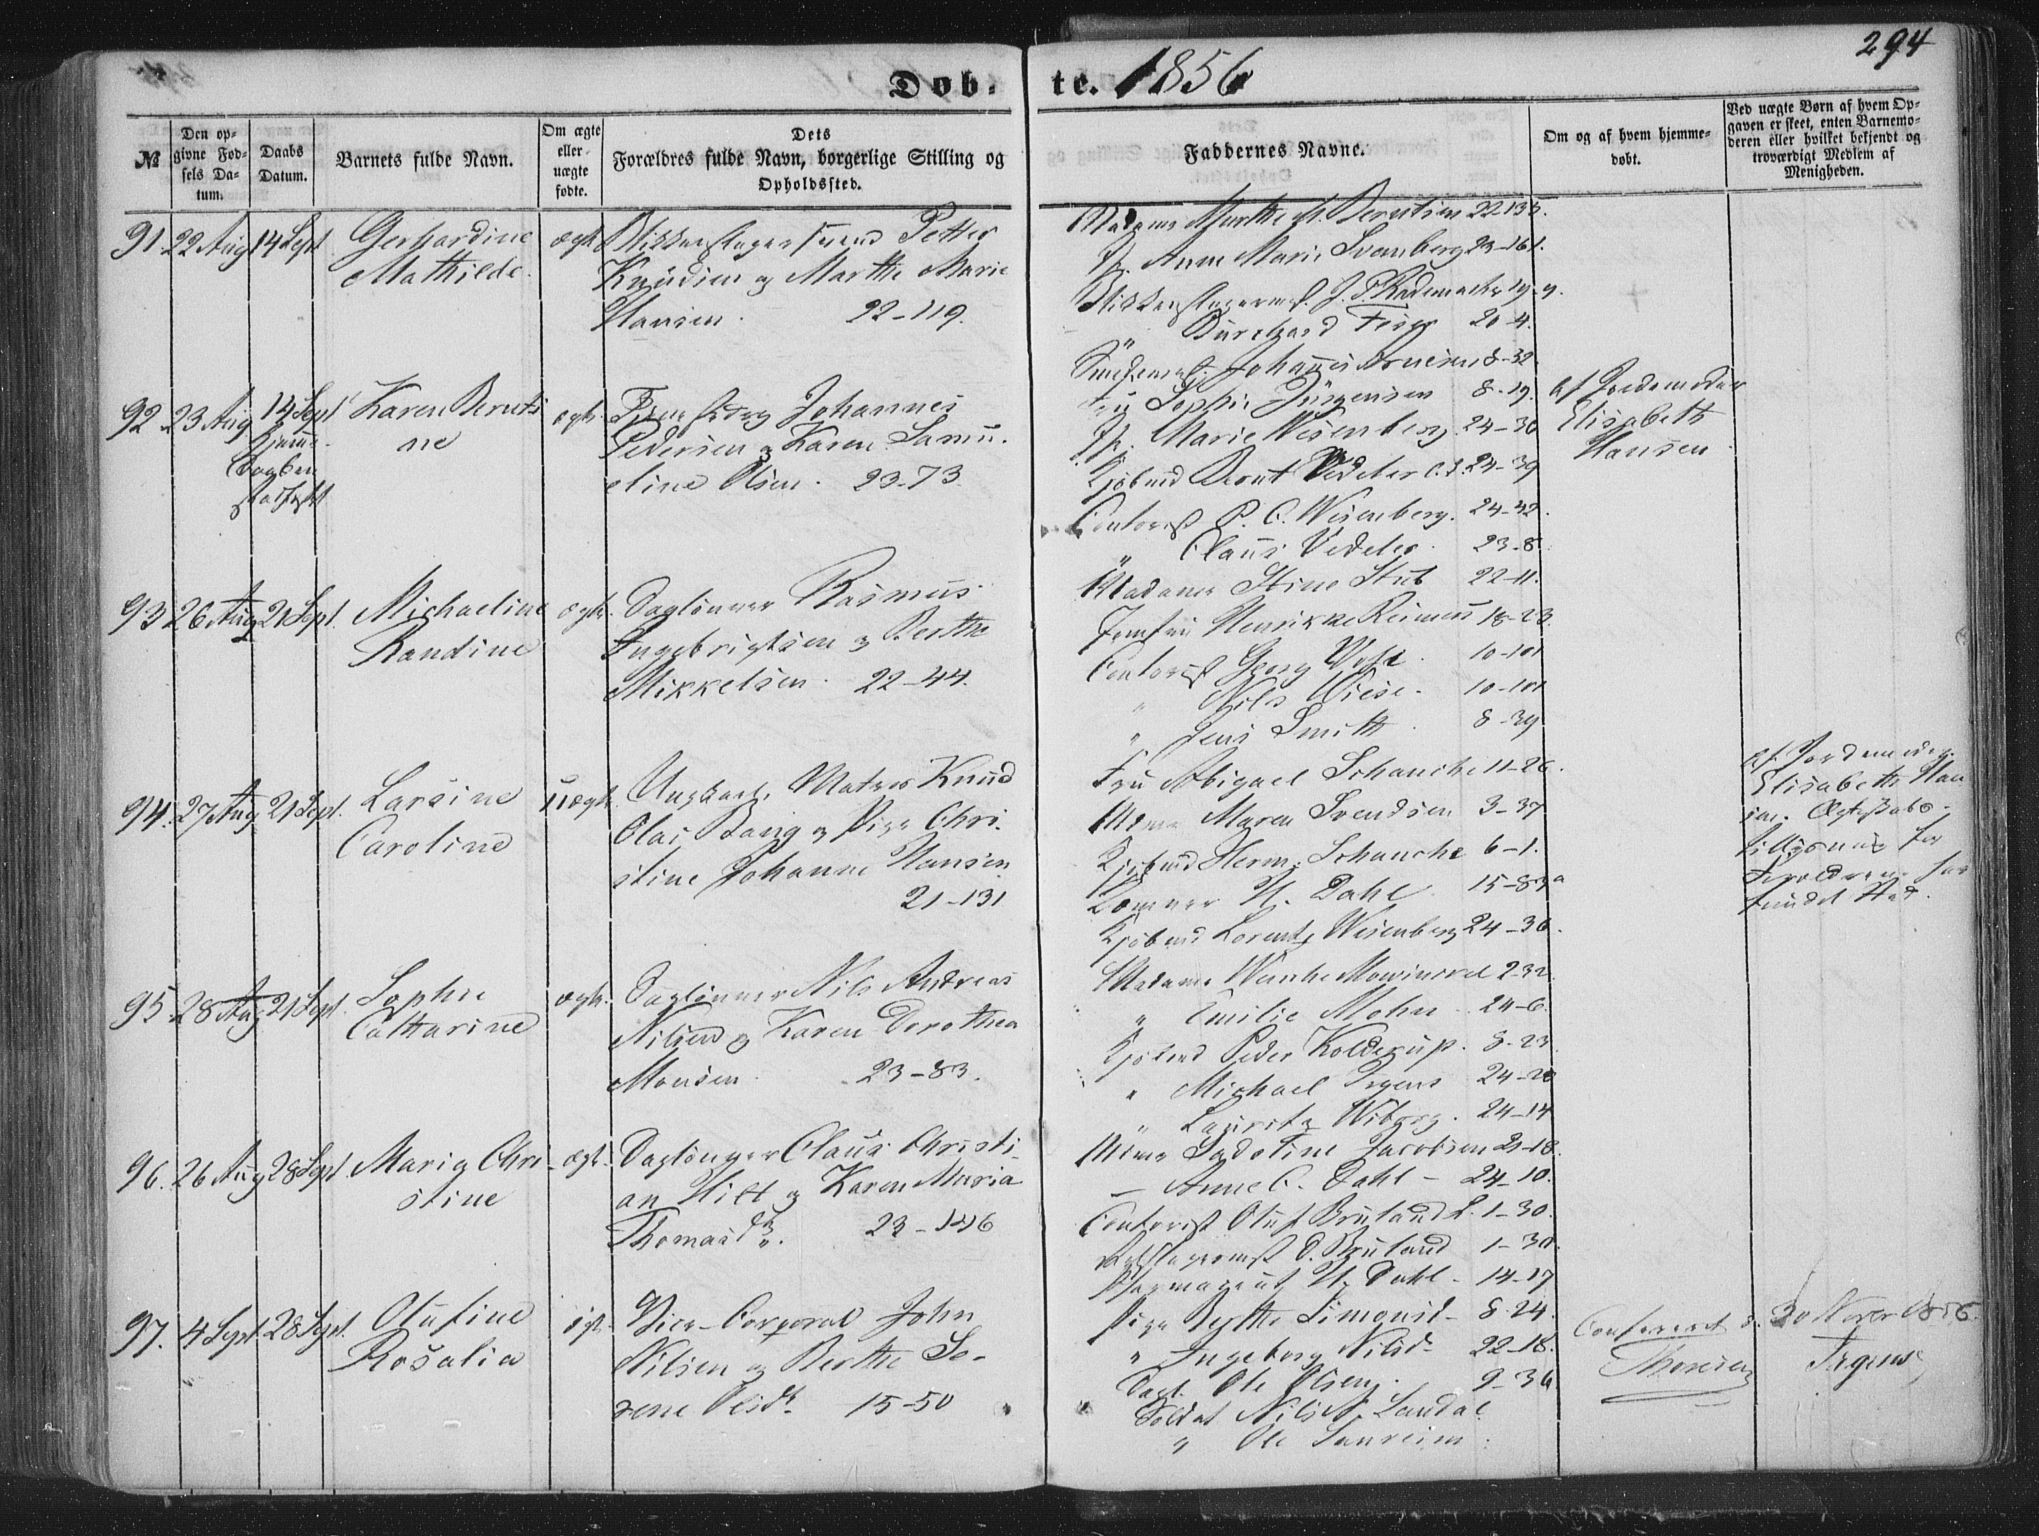 294
Døb-
te. 1856
№
Den op-
givne Fød-
sels Da-
tum.
Daabs
Datum.
Barnets fulde Navn.
Om ægte
eller
uægte
fødte.
Dets
Forældres fulde Navn, borgerlige Stilling og
Opholdssted.
Faddernes Navne.
Om og af hvem hjemme-
døbt.
Ved uægte Børn af hvem Op-
gaven er skeet, enten Barnemo-
deren eller hvilket bekjendt og
troværdigt Medlem af
Menigheden.
91. 22 Aug 14 Sept Gerhardine
Mathilde.
ægte Blikkenslagersvend Petter
Knudsen og Marthe Marie
Hansen. 22-119.
Madame Marthe M. Berntsen 22-135.
Jf. Anne Marie Svanberg 23-161.
Blikkenslagerm. J. S. Rademacher 19-9.
" Burchard 20-4.
Johannes 8-32.
92 23 Aug 14 Sept
Karen Bernti
ne
ægte. Johannes
Pedersen og Karen Samu-
eline Olsen. 23-73
Fru Sophie Jürgensen 8-19.
Jf. Marie Wesenberg. 24-36
Kjøbmd Bernt Vedeler 24-39
Contorist P. C. Wesenberg. 24-42.
" Claus Vedeler. 23-8.
af Jordemoder
Elisabeth
Hansen.
93 26 Aug 21 Sept. Michaeline
Randine
ægte. Daglønner Rasmus
Ingebrigtsen og Berthe
Mikkelsen. 22-44.
Madame Stine Stub 22-11.
Jomfru Henrikke Reimers 18-23.
Contorist Georg 10-101
" Nils Wiese. 10-101
" Jens Smith. 8-39
94. 27 Aug 21 Sept. Larsine
Caroline
uægte. Ungkarl, Matros Knud
Olai Bang og Pige Chri-
stine Johanne Hansen
21-131
Fru Abigael Schanche 11-26.
Mdme Maren Svendsen 3-37
Kjøbmd Herm. Schanche 6-1.
H. Dahl 15-83a
Kjøbmd Lorentz Wesenberg 24-36.
af Jordemoder
Elisabeth Han
sen. Ægteskabs-
for
Forældrene
95. 28 Aug 21 Sept. Sophie
Catharine
ægte. Daglønner Nils Andreas
Nilsen og Karen Dorothea
Monsen. 23-83.
Madame Wenche Mowinckel 2-32.
" Emilie Mohn 24-6.
Kjøbmd Peder Kolderup. 8-23
" Michael Irgens 24-20
" Lauritz Wiborg. 24-14
96. 26 Aug 28 Sept. Marie Chri-
stine
ægt. Daglønner Claus Christi-
an Hilt og Karen Maria
Thomasdr. 23-146
Mdme Jacobsen 21-18.
— Anne C. Dahl - 24-10.
Contorist Oluf Bruland 1-30.
D. Bruland 1-30.
H. Dahl - 14-17
97. 4 Sept. 28 Sept. Olufine
Rosalia
ægt. Vice-Corporal John
Nilsen og Berthe Se-
rene Olsdr. 15-50
Pige Berthe Simonsd. 8-24.
" Ingeborg Nilsd. 22-18.
Dagl. Ole Olsen. 9-36.
Soldat Nils Landal.
" Ole
Confereret d. 20 Novbr 1856.
Irgens